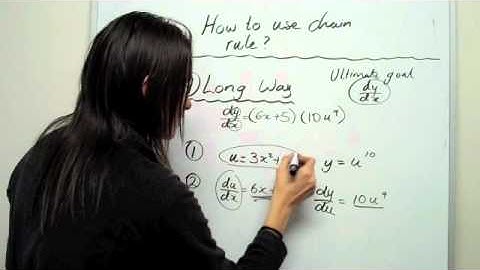 How to use chain
rule?
Ultimate goal
dy/dx
) Long Way
dy/dx = (6x+5)(10u⁹)
① u = 3x²+ y = u¹⁰
② du/dx = 6x+ dy/du = 10u⁹